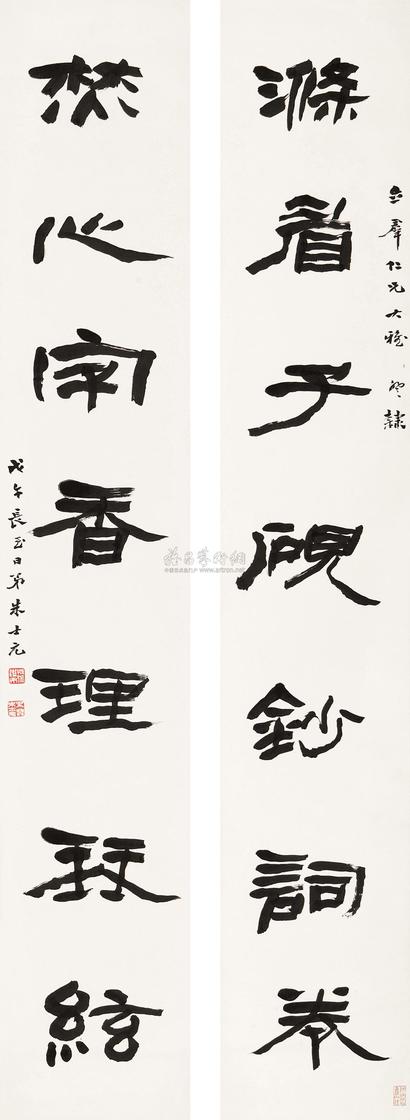 滌眉子硯鈔詞卷
羣仁兄大雅 隸
焚心字香理琴絃
戊午長至日弟朱士元
雅昌藝術網
www.artron.net